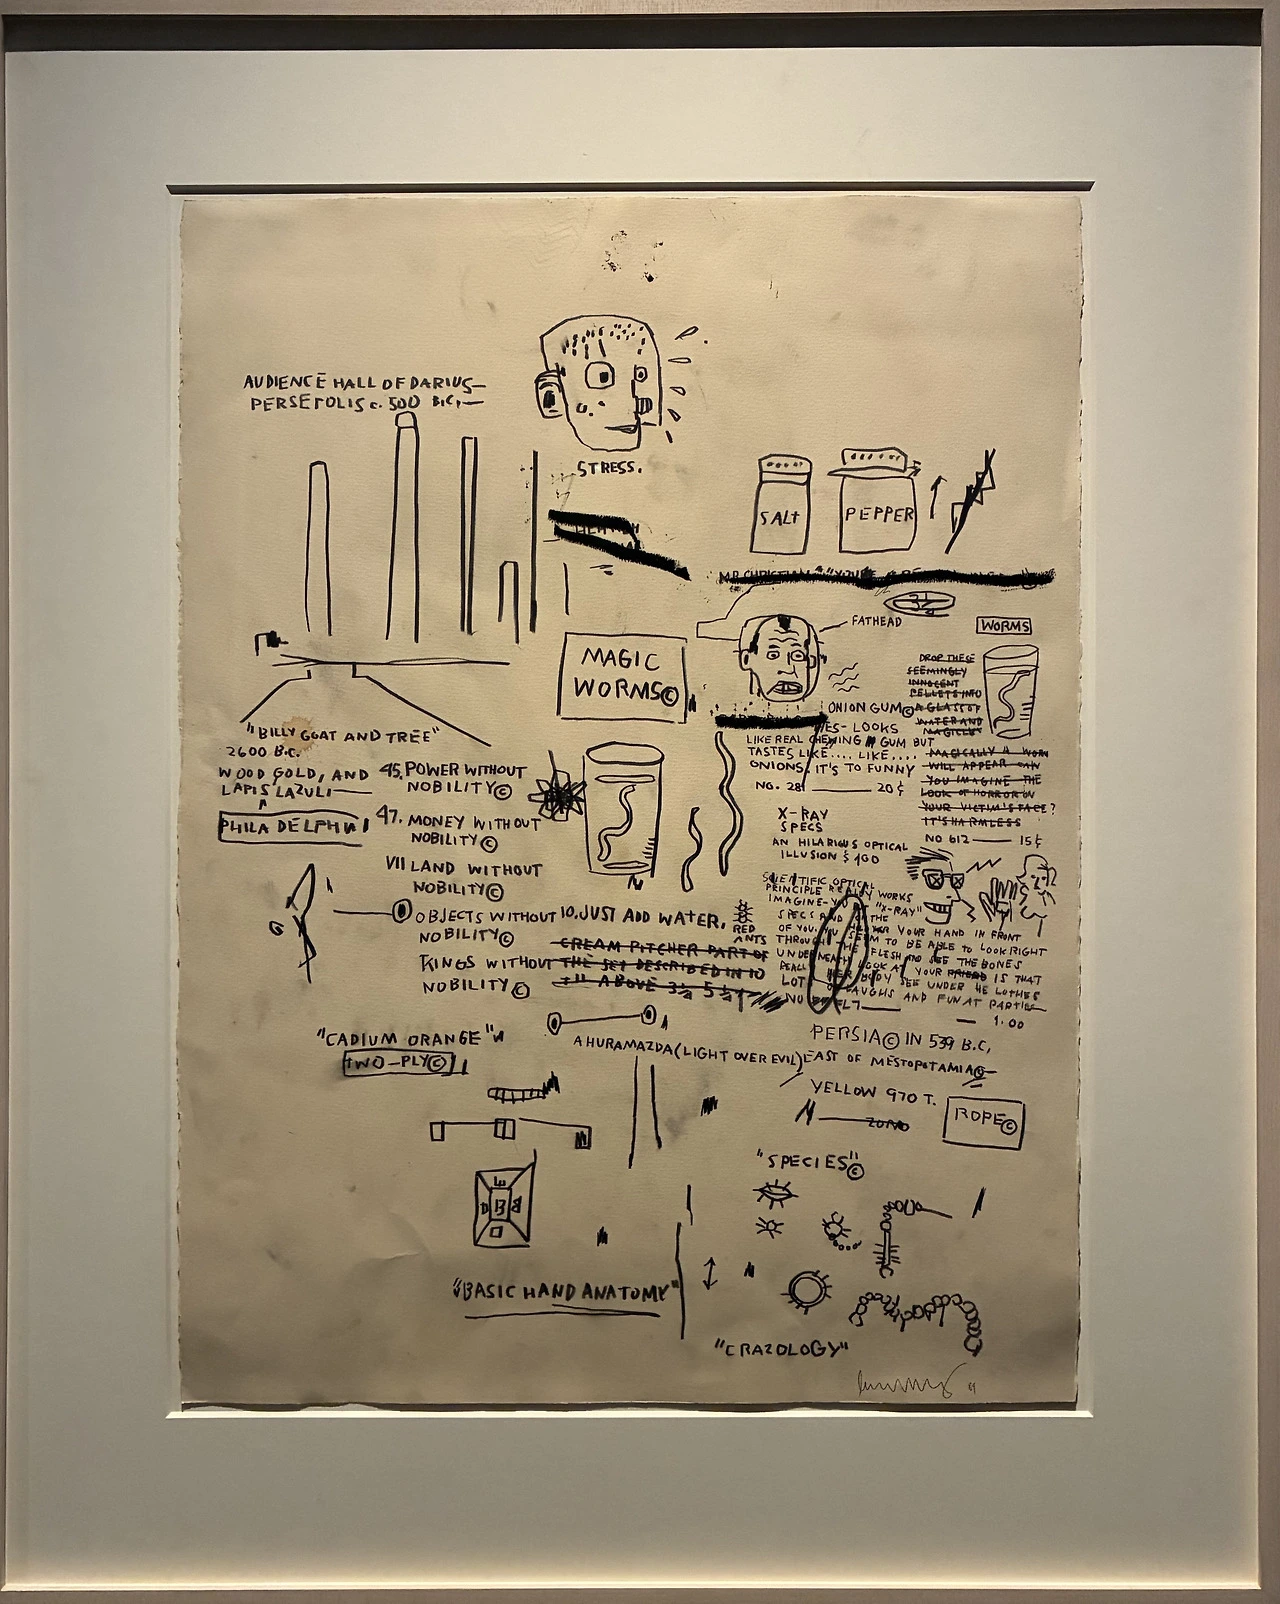 AUDIENCE HALL OF DARIUS—
PERSEPOLIS c. 500 B.C.—
STRESS.
SALT
PEPPER
MR. CHRISTIAN
3½
FATHEAD
WORMS
DROP THESE
SEEMINGLY
INNOCENT
PELLETS INTO
A GLASS OF
WATER AND
MAGICLLY
MAGICALLY A WORM
WILL APPEAR CAN
YOU IMAGINE THE
LOOK OF HORROR ON
YOUR VICTIM'S FACE?
IT'S HARMLESS
NO 612—— 15¢
MAGIC
WORMS©
ONION GUM©
YES- LOOKS
LIKE REAL CHEWING GUM BUT
TASTES LIKE.... LIKE....
ONIONS. IT'S TO FUNNY
NO. 28 —— 20¢
X-RAY
SPECS
AN HILARIOUS OPTICAL
ILLUSION $1.00
SCIENTIFIC OPTICAL
PRINCIPLE REALLY WORKS
IMAGINE-YOU "X-RAY"
SPECS AND THE
OF YOU. YOUR HAND IN FRONT
THROUGH THE SEEM TO BE ABLE TO LOOK RIGHT
UNDERNEATH FLESH SEE THE BONES
REALLY LOOK AT YOUR FRIEND IS THAT
HER BODY SEE UNDER HE LOTHES
LOT OF LAUGHS AND FUN AT PARTIE
NO
— 1.00
"BILLY GOAT AND TREE"
2600 B.C.
WOOD GOLD, AND
LAPIS LAZULI——
PHILADELPHIA
45. POWER WITHOUT
NOBILITY©
47. MONEY WITHOUT
NOBILITY©
VII LAND WITHOUT
NOBILITY©
OBJECTS WITHOUT
NOBILITY©
KINGS WITHOUT
NOBILITY©
10. JUST ADD WATER.
CREAM PITCHER PART OF
THE SET DESCRIBED IN 10
ABOVE 3½ 5¼
RED
ANTS
"CADIUM ORANGE"
TWO-PLY©
AHURAMAZDA (LIGHT OVER EVIL)
PERSIA© IN 539 B.C,
EAST OF MESTOPOTAMIA©
YELLOW 970 T.
ROPE©
"SPECIES"©
"BASIC HAND ANATOMY"
"CRAZOLOGY"